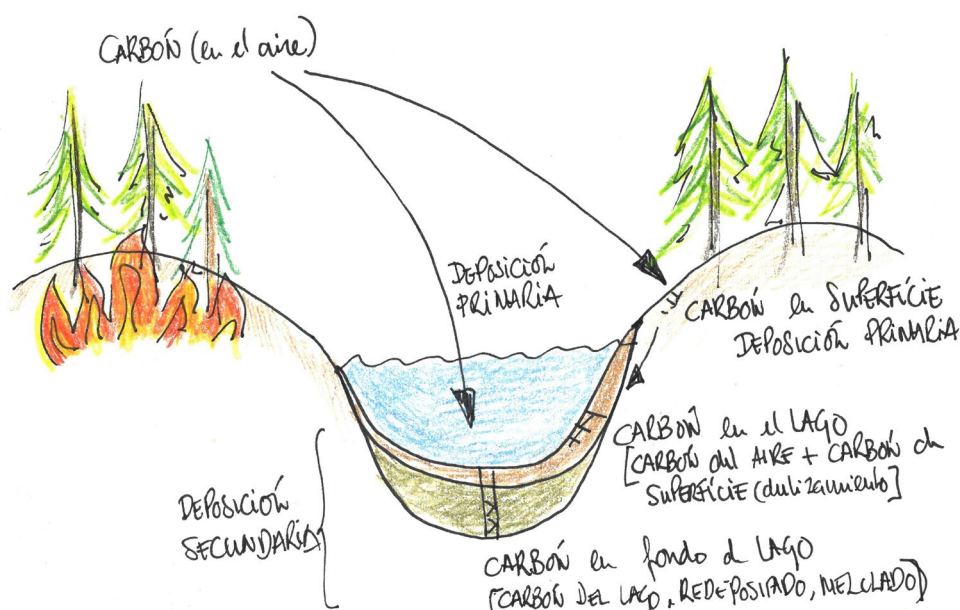 CARBÓN (en el aire)
DEPOSICIÓN
PRIMARIA
CARBÓN en SUPERFÍCIE
DEPOSICIÓN PRIMARIA
CARBÓN en el LAGO
[CARBÓN del AIRE + CARBÓN de
SUPERFÍCIE (deslizamiento]
DEPOSICIÓN
SECUNDARIA
CARBÓN en fondo de LAGO
[CARBÓN DEL LAGO, REDEPOSITADO, MEZCLADO]